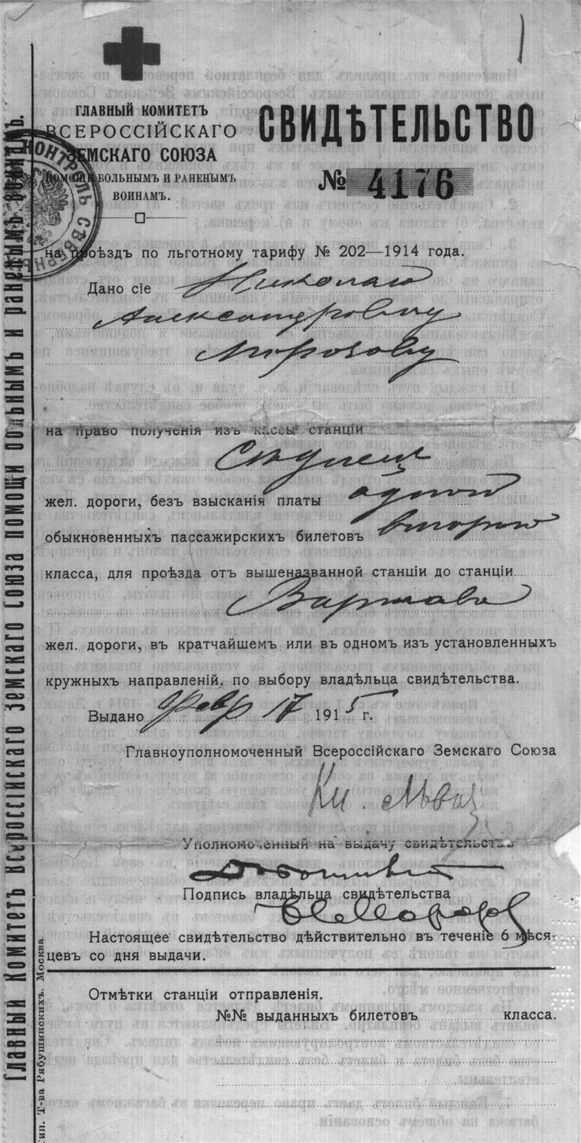 ГЛАВНЫЙ КОМИТЕТЪ
ВСЕРОССІЙСКАГО
ЗЕМСКАГО СОЮЗА
ПОМОЩИ БОЛЬНЫМЪ И РАНЕНЫМЪ
ВОИНАМЪ.
СВИДѢТЕЛЬСТВО
№ 4176
КОНТРОЛЬ СѢВЕРН
на проѣздъ по льготному тарифу № 202—1914 года.
Дано сіе Николаю
Александровичу
Морозову
на право полученія изъ кассы станціи
жел. дороги, безъ взысканія платы одной
обыкновенныхъ пассажирскихъ билетовъ второго
класса, для проѣзда отъ вышеназванной станціи до станціи
Варшава
жел. дороги, въ кратчайшемъ или въ одномъ изъ установленныхъ
кружныхъ направленій, по выбору владѣльца свидѣтельства.
Выдано февр 17 1915 г.
Главноуполномоченный Всероссійскаго Земскаго Союза
Кн. Львов
Уполномоченный на выдачу свидѣтельствъ
Подпись владѣльца свидѣтельства
НМорозов
Настоящее свидѣтельство дѣйствительно въ теченіе 6 мѣся-
цевъ со дня выдачи.
Отмѣтки станціи отправленія.
№№ выданныхъ билетовъ класса.
Главный Комитетъ Всероссійскаго Земскаго Союза помощи больнымъ и раненымъ воинамъ.
Тип. Т-ва Рябушинскихъ. Москва